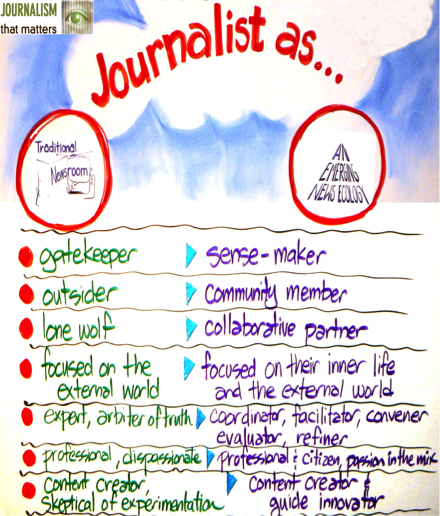 JOURNALISM
that matters
Journalist as...
Traditional
Newsroom
AN
EMERGING
NEWS ECOLOGY
gatekeeper
sense-maker
outsider
Community member
lone wolf
collaborative partner
focused on the
external world
focused on their inner life
and the external world
expert, arbiter of truth
coordinator, facilitator, convener
evaluator, refiner
professional, dispassionate
Professional & citizen, passion in the mix
content creator,
skeptical of experimentation
Content creator &
guide innovator